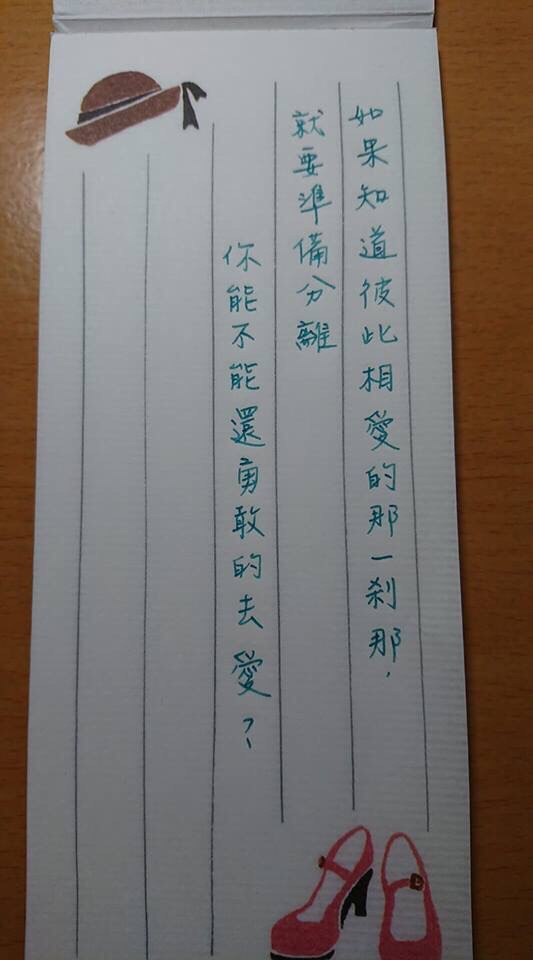 如果知道彼此相愛的那一剎那，
就要準備分離
你能不能還勇敢的去愛？